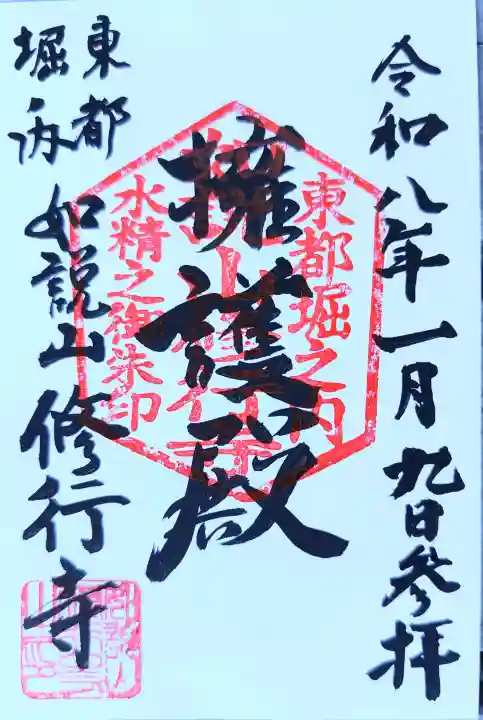 令和八年一月九日参拝
擁護殿
東都堀之内
水精之御朱印
東都
堀内
如説山修行寺